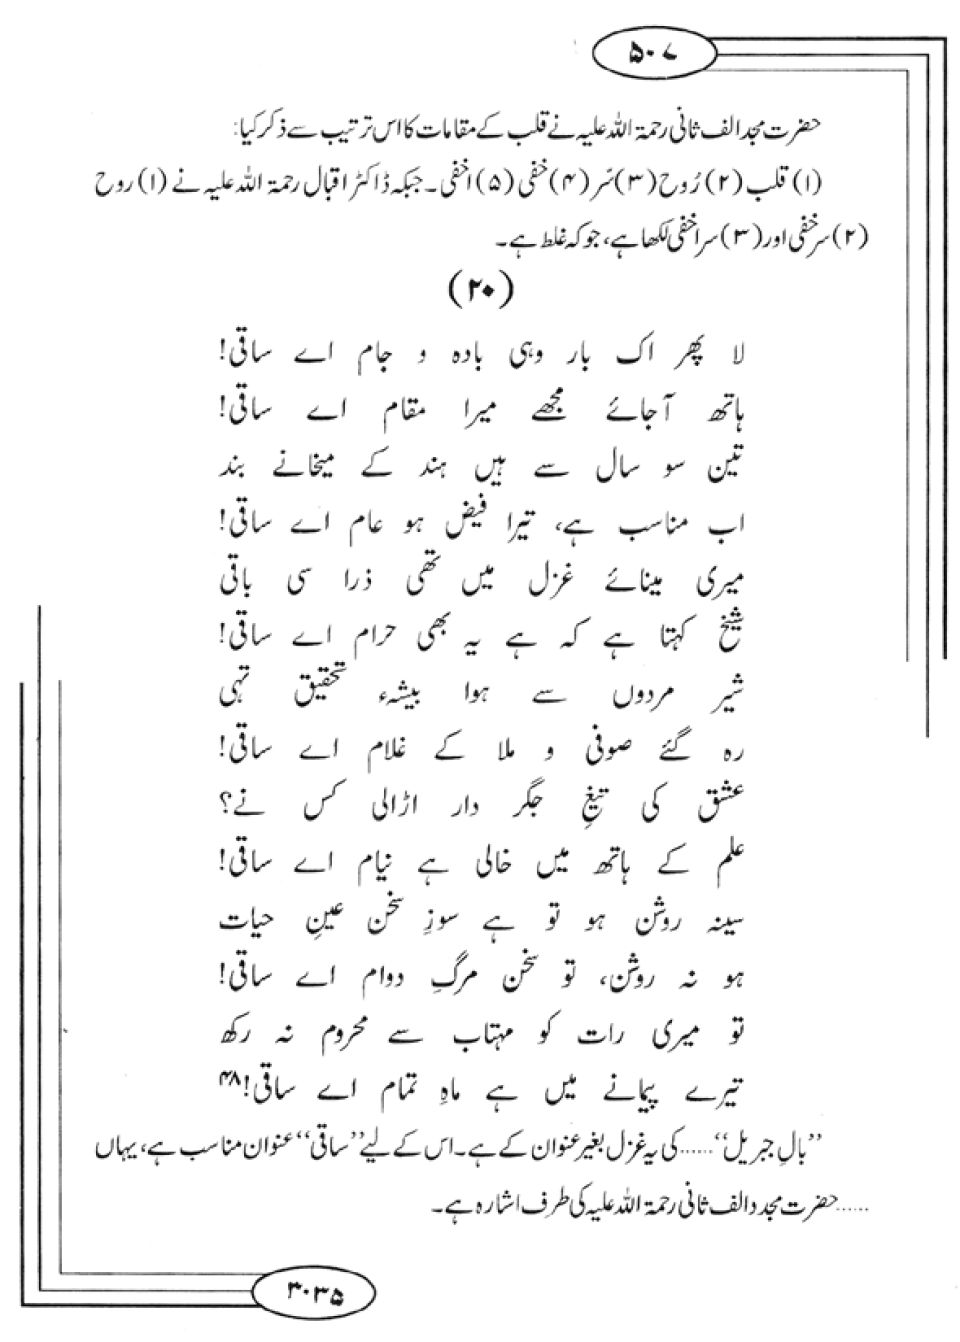 ۵۰۷
حضرت مجدد الف ثانی رحمۃ اللہ علیہ نے قلب کے مقامات کا اس ترتیب سے ذکر کیا:
(۱) قلب (۲) رُوح (۳) سّر (۴) خفی (۵) اخفی۔ جبکہ ڈاکٹر اقبال رحمۃ اللہ علیہ نے (۱) روح
(۲) سرخفی اور (۳) سراخفی لکھا ہے، جو کہ غلط ہے۔
(۲۰)
لا پھر اک بار وہی بادہ و جام اے ساقی!
ہاتھ آجائے مجھے میرا مقام اے ساقی!
تین سو سال سے ہیں ہند کے میخانے بند
اب مناسب ہے، تیرا فیض ہو عام اے ساقی!
میری مینائے غزل میں تھی ذرا سی باقی
شیخ کہتا ہے کہ ہے یہ بھی حرام اے ساقی!
شیر مردوں سے ہوا بیشہء تحقیق تہی
رہ گئے صوفی و ملا کے غلام اے ساقی!
عشق کی تیغِ جگر دار اڑالی کس نے؟
علم کے ہاتھ میں خالی ہے نیام اے ساقی!
سینہ روشن ہو تو ہے سوزِ سخن عینِ حیات
ہو نہ روشن، تو سخن مرگِ دوام اے ساقی!
تو میری رات کو مہتاب سے محروم نہ رکھ
تیرے پیمانے میں ہے ماہِ تمام اے ساقی!۴۸
”بالِ جبریل“ ...... کی یہ غزل بغیر عنوان کے ہے۔ اس کے لیے ”ساقی“ عنوان مناسب ہے، یہاں
...... حضرت مجدد الف ثانی رحمۃ اللہ علیہ کی طرف اشارہ ہے۔
۳۰۳۵